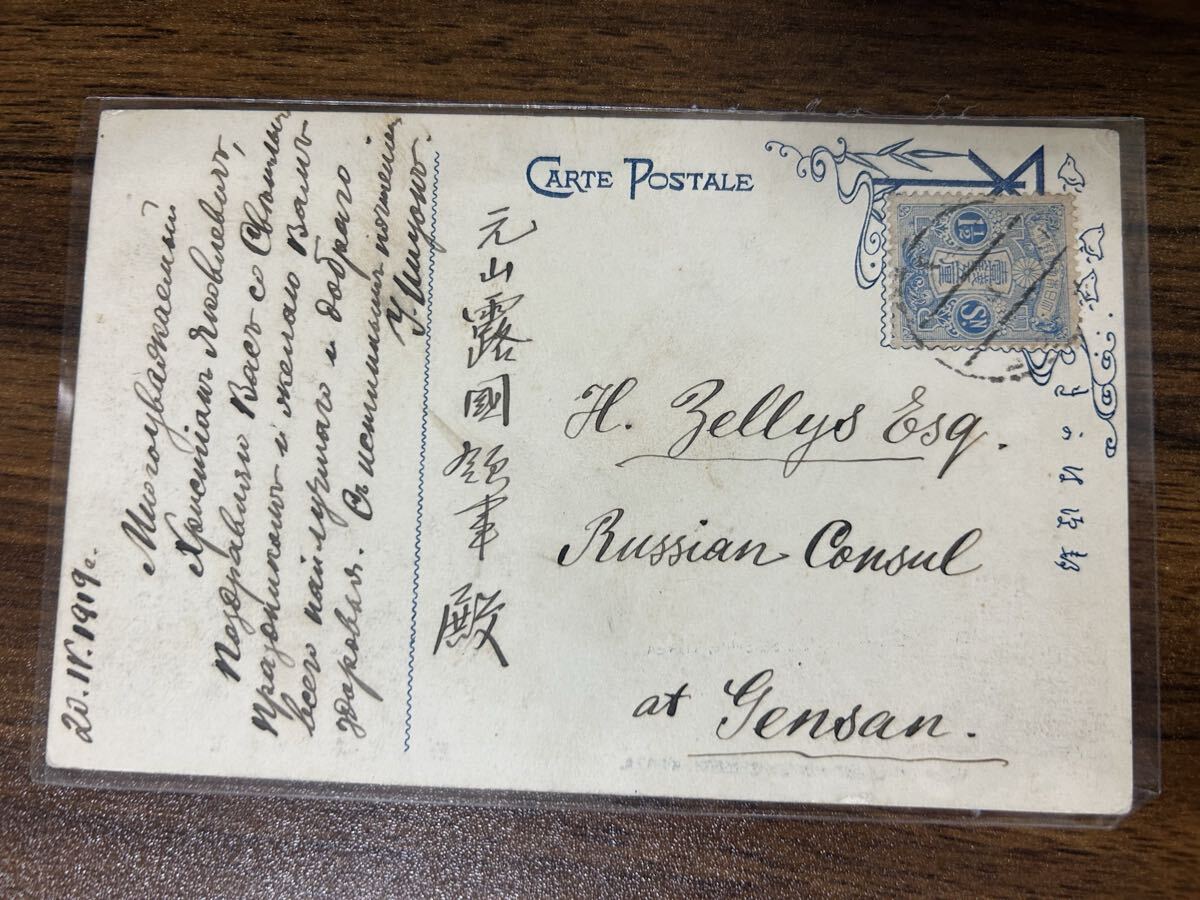 CARTE POSTALE
元山露國領事殿
H. Zellys Esq.
Russian Consul
at Gensan.
20.IV.1919г.
Многоуважаемый
Христіанъ Яковлевичъ,
Поздравляю Васъ со Свѣтлымъ
праздникомъ и желаю Вамъ
всего наилучшаго и добраго
здоровья. Съ истиннымъ почтеніемъ
1½
Sn